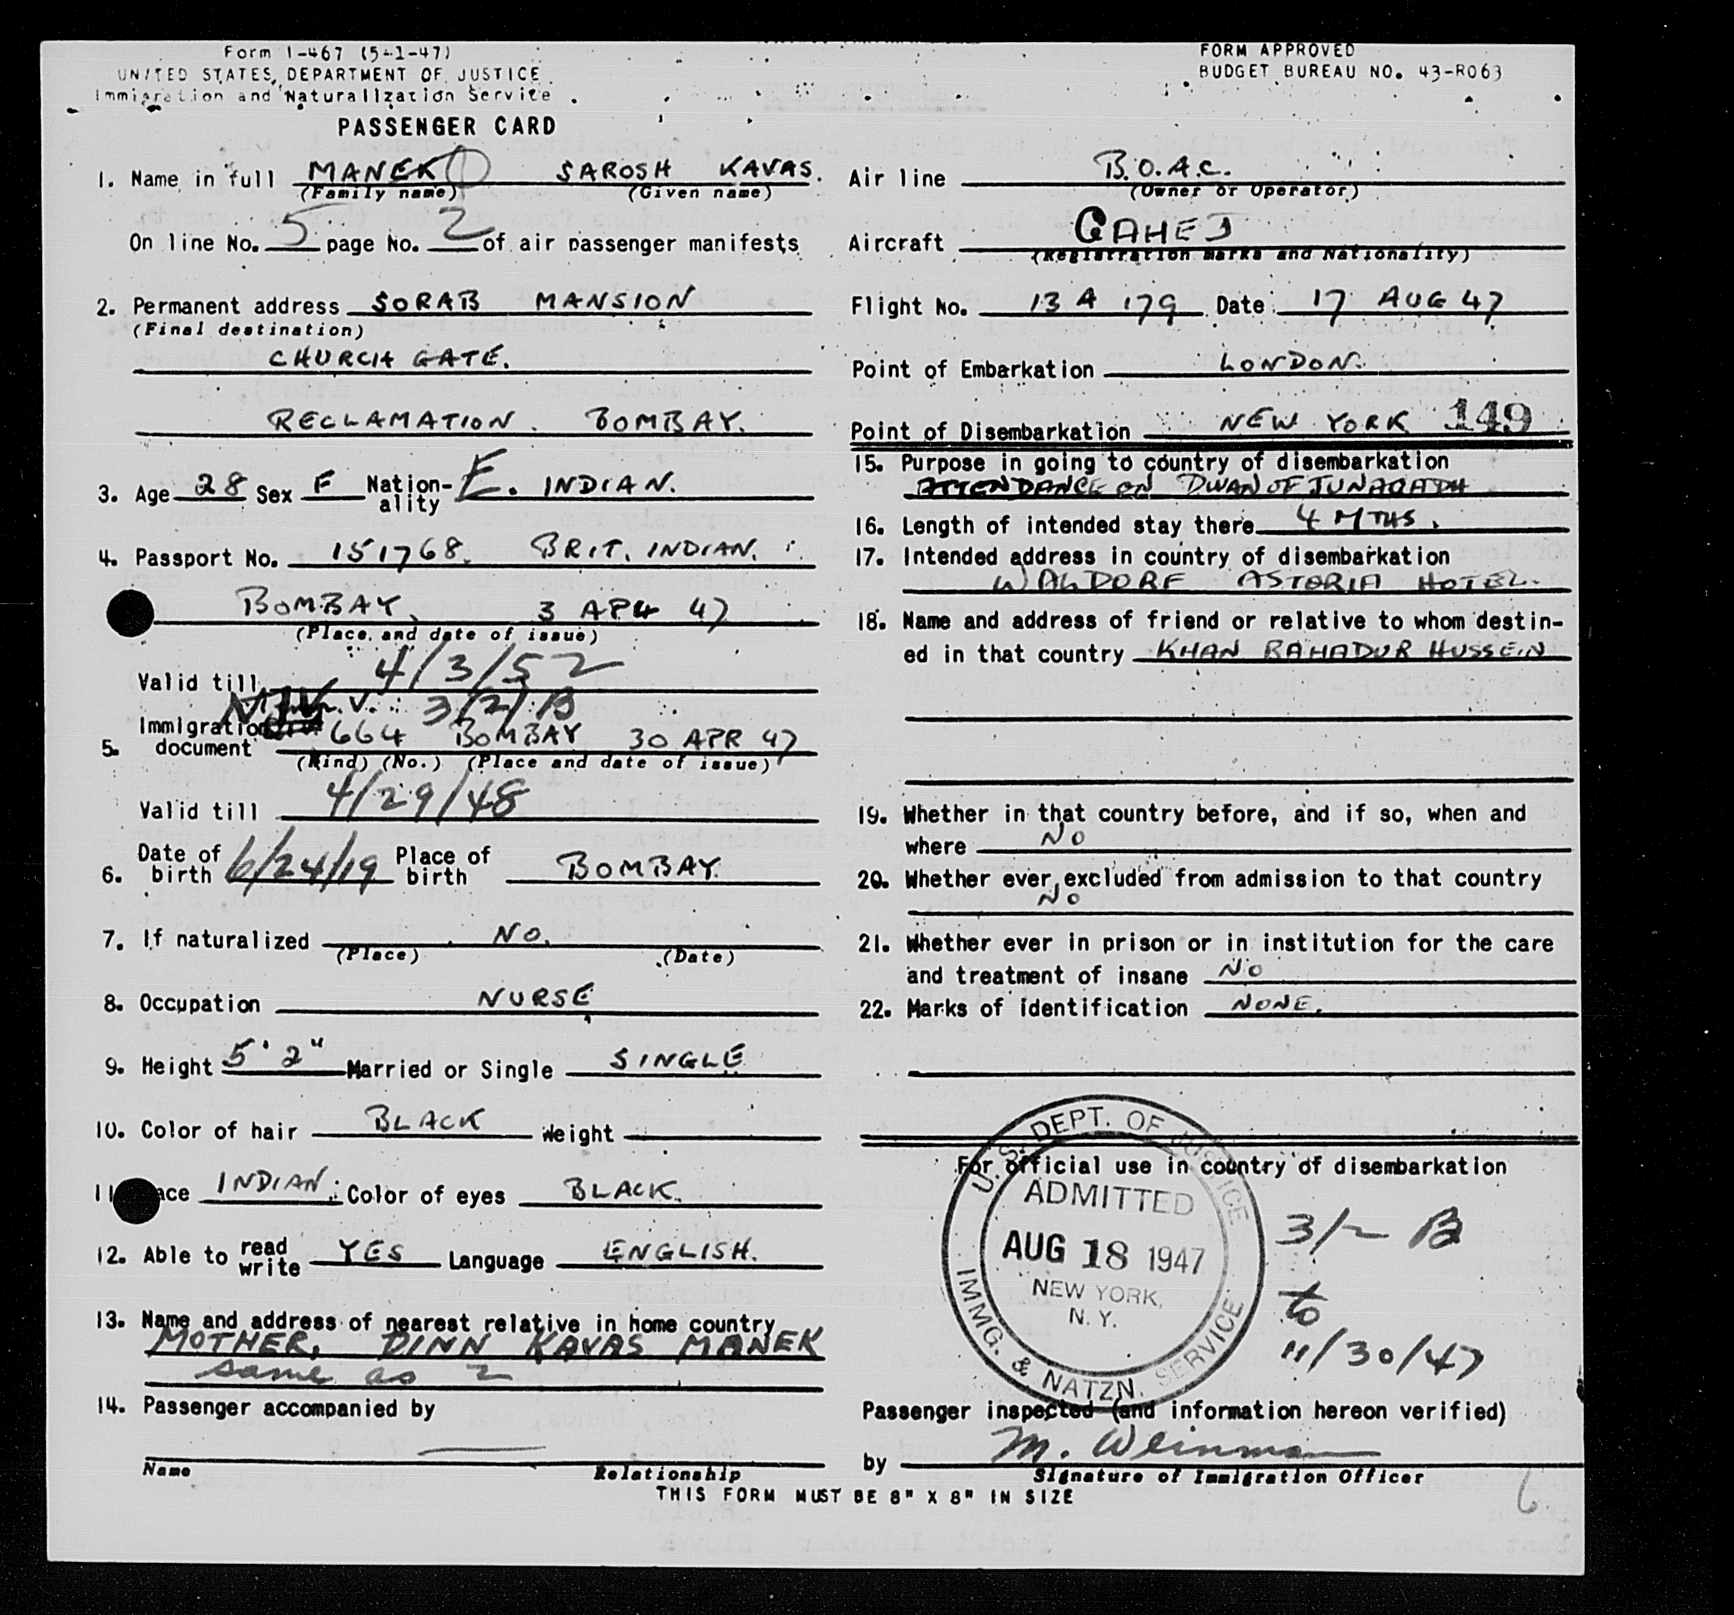 Form I-467 (5-1-47)
UNITED STATES DEPARTMENT OF JUSTICE
Immigration and Naturalization Service
PASSENGER CARD
FORM APPROVED
BUDGET BUREAU NO. 43-R063
1. Name in full MANEK SAROSH KAVAS.
(Family name) (Given name)
On line No. 5 page No. 2 of air passenger manifests
2. Permanent address SORAB MANSION
(Final destination)
CHURCH GATE.
RECLAMATION. BOMBAY.
3. Age 28 Sex F Nation-ality E. INDIAN.
4. Passport No. 151768. BRIT. INDIAN.
BOMBAY, 3 APR 47
(Place and date of issue)
Valid till 4/3/52
V. 3/2/B
5. Immigration document 664 BOMBAY 30 APR 47
(Kind) (No.) (Place and date of issue)
Valid till 4/29/48
6. Date of birth 6/24/19 Place of birth BOMBAY.
7. If naturalized NO.
(Place) (Date)
8. Occupation NURSE
9. Height 5' 2" Married or Single SINGLE
10. Color of hair BLACK Weight
11 ace INDIAN Color of eyes BLACK.
12. Able to read write YES Language ENGLISH.
13. Name and address of nearest relative in home country
MOTHER, DINN KAVAS MANEK
same as 2
14. Passenger accompanied by
Name Relationship
Air line B.O.A.C.
(Owner or Operator)
Aircraft GAHEJ
(Registration marks and Nationality)
Flight No. 13 A 179 Date 17 AUG 47
Point of Embarkation LONDON.
Point of Disembarkation NEW YORK 149
15. Purpose in going to country of disembarkation
ATTENDANCE ON DWAN OF JUNAGADH
16. Length of intended stay there 4 MTHS.
17. Intended address in country of disembarkation
WALDORF ASTORIA HOTEL.
18. Name and address of friend or relative to whom destin-
ed in that country KHAN BAHADUR HUSSEIN
19. Whether in that country before, and if so, when and
where NO
20. Whether ever excluded from admission to that country
NO
21. Whether ever in prison or in institution for the care
and treatment of insane NO
22. Marks of identification NONE.
For official use in country of disembarkation
U.S. DEPT. OF JUSTICE
ADMITTED
AUG 18 1947
NEW YORK,
N. Y.
IMMG. & NATZN. SERVICE
3/2 B
to
11/30/47
Passenger inspected (and information hereon verified)
by M. Weinman
Signature of Immigration Officer
THIS FORM MUST BE 8" X 8" IN SIZE
6